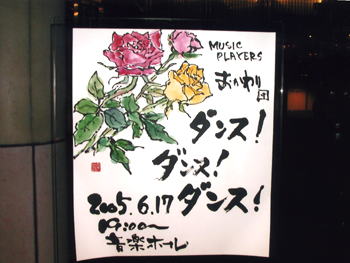 MUSIC
PLAYERS
おかわり団
ダンス!
ダンス!
ダンス!
2005.6.17
19:00〜
音楽ホール